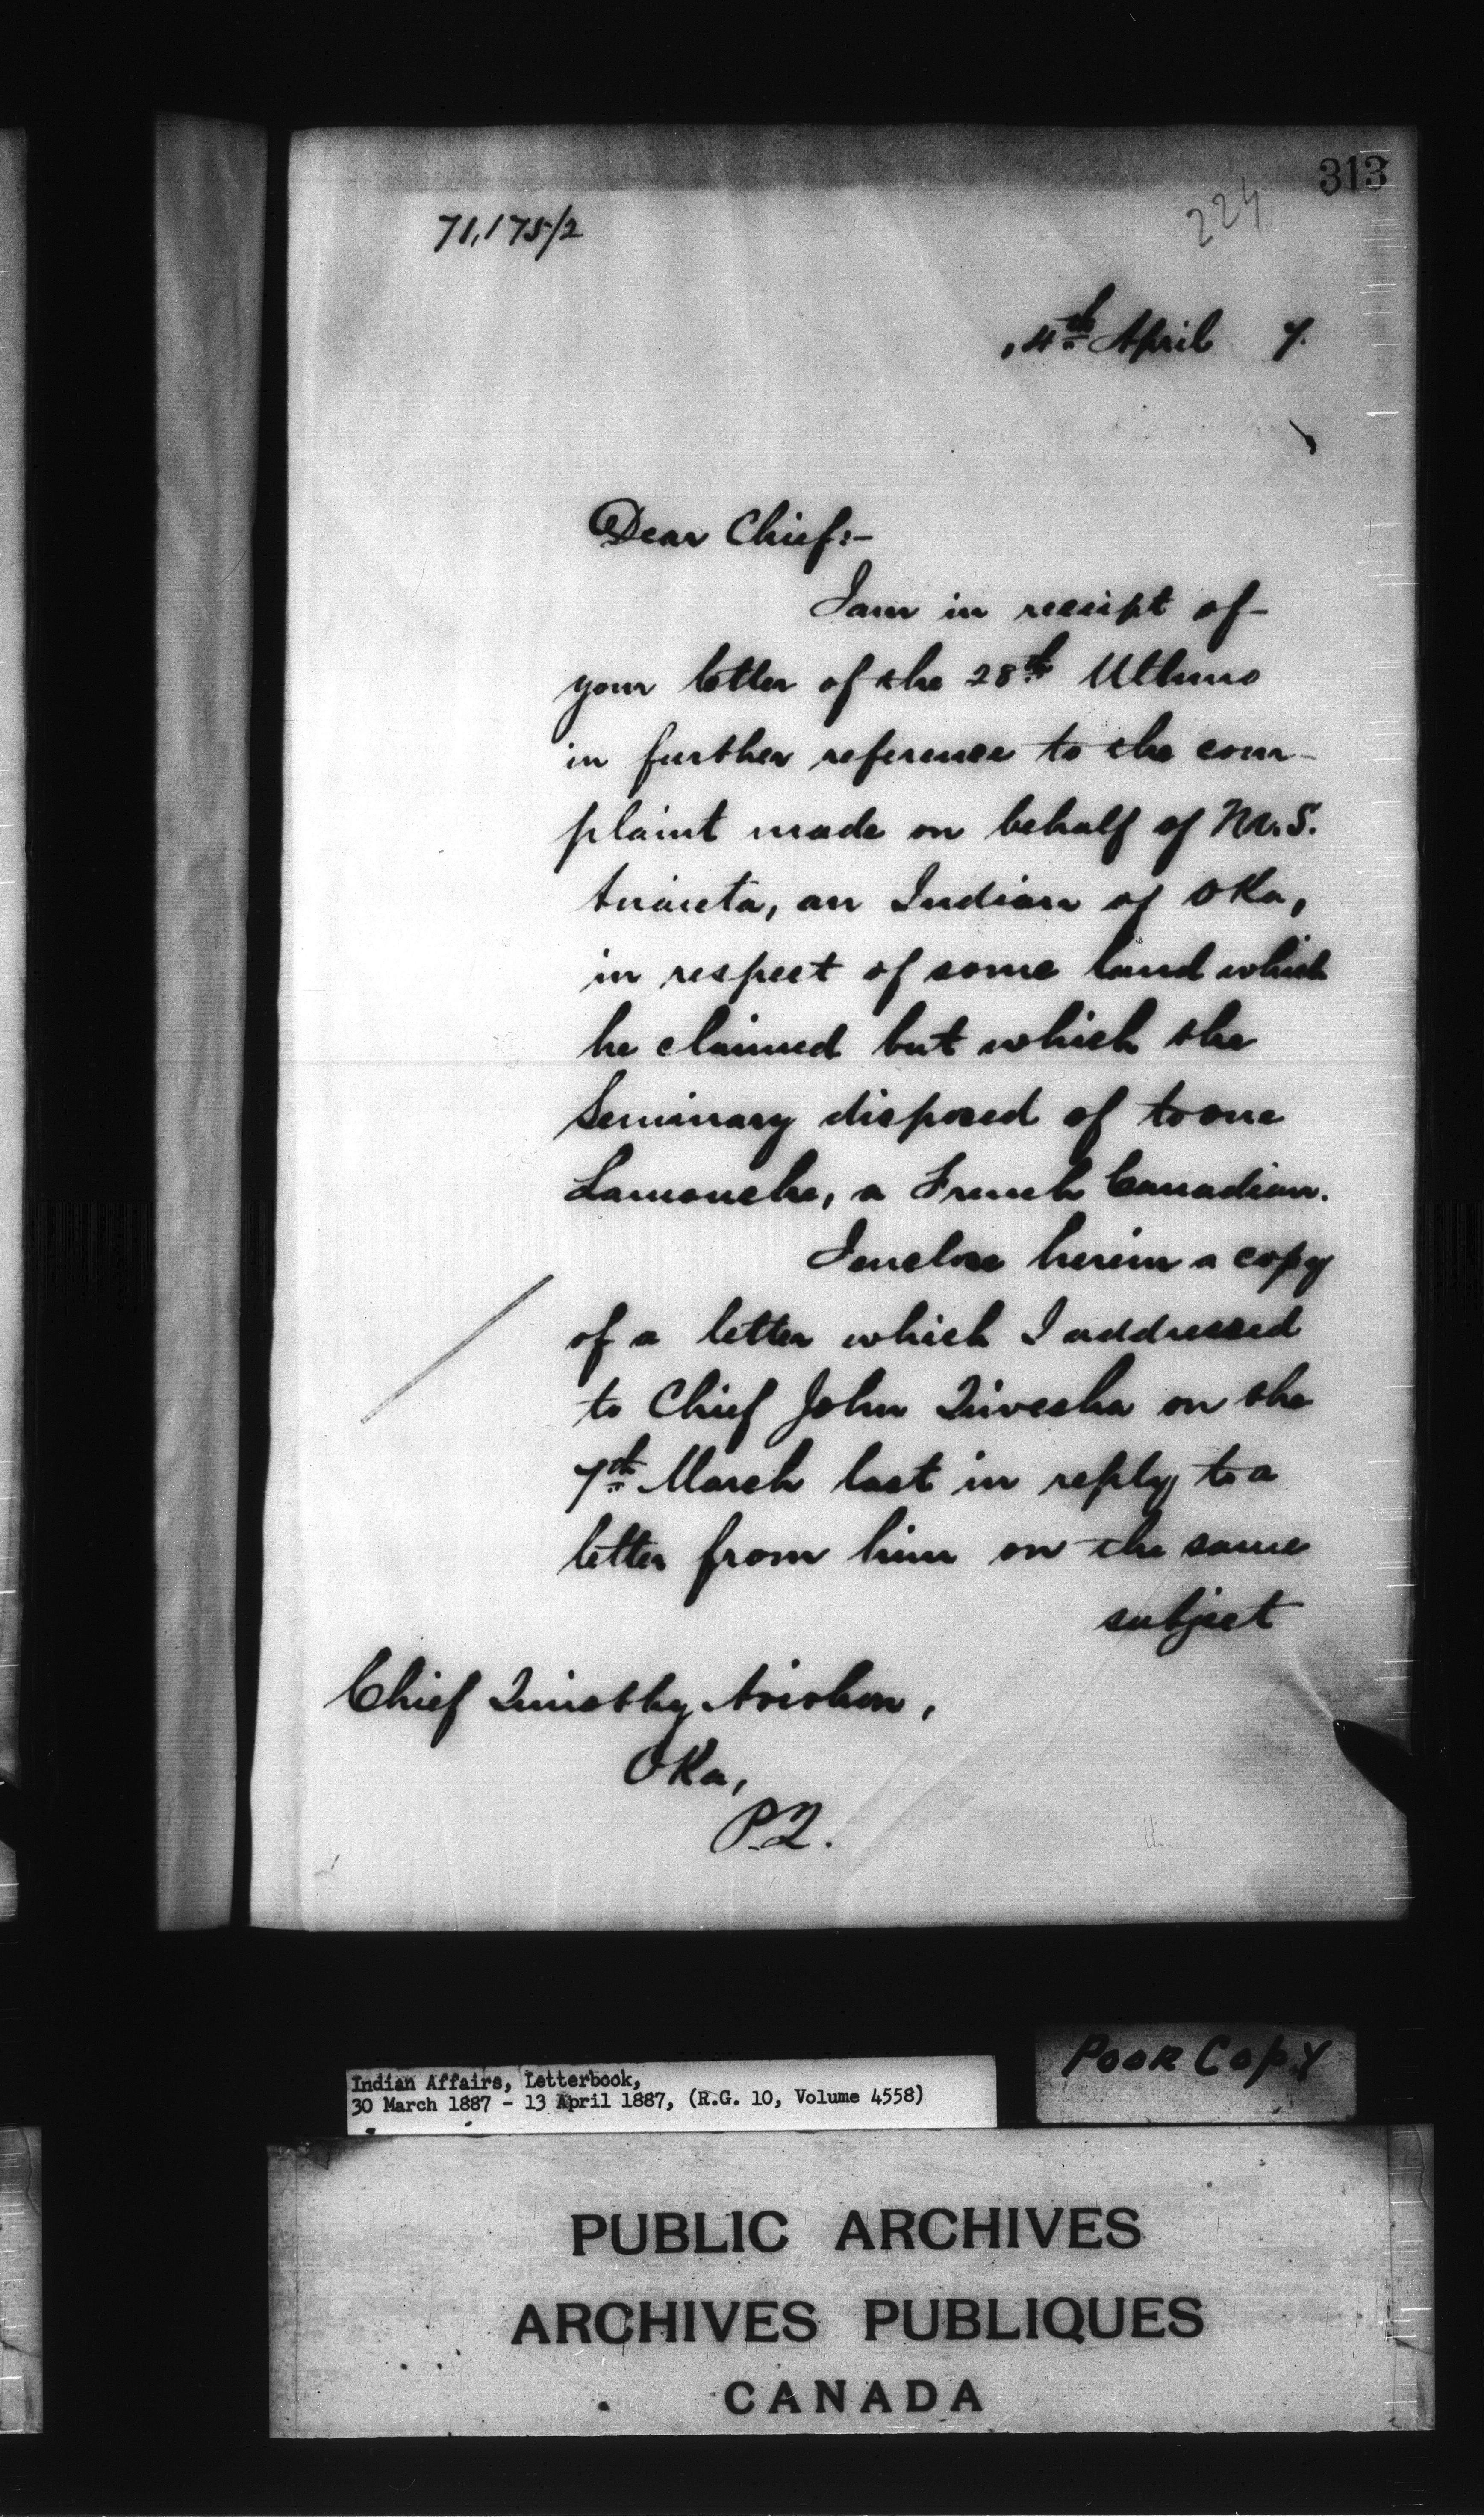 313
224
71,175/2
4th April 7.
Dear Chief:-
I am in receipt of
your letter of the 28th Ultimo
in further reference to the com-
plaint made on behalf of M.S.
an Indian of Oka,
in respect of some land which
he claimed but which the
Seminary disposed of to one
Lamouche, a French Canadian.
I enclose herein a copy
of a letter which I addressed
to Chief John Tiwesha on the
7th March last in reply to a
letter from him on the same
subject
Chief Timothy Arirhon,
Oka,
P.Q.
Poor Copy
Indian Affairs, Letterbook,
30 March 1887 - 13 April 1887, (R.G. 10, Volume 4558)
PUBLIC ARCHIVES
ARCHIVES PUBLIQUES
CANADA